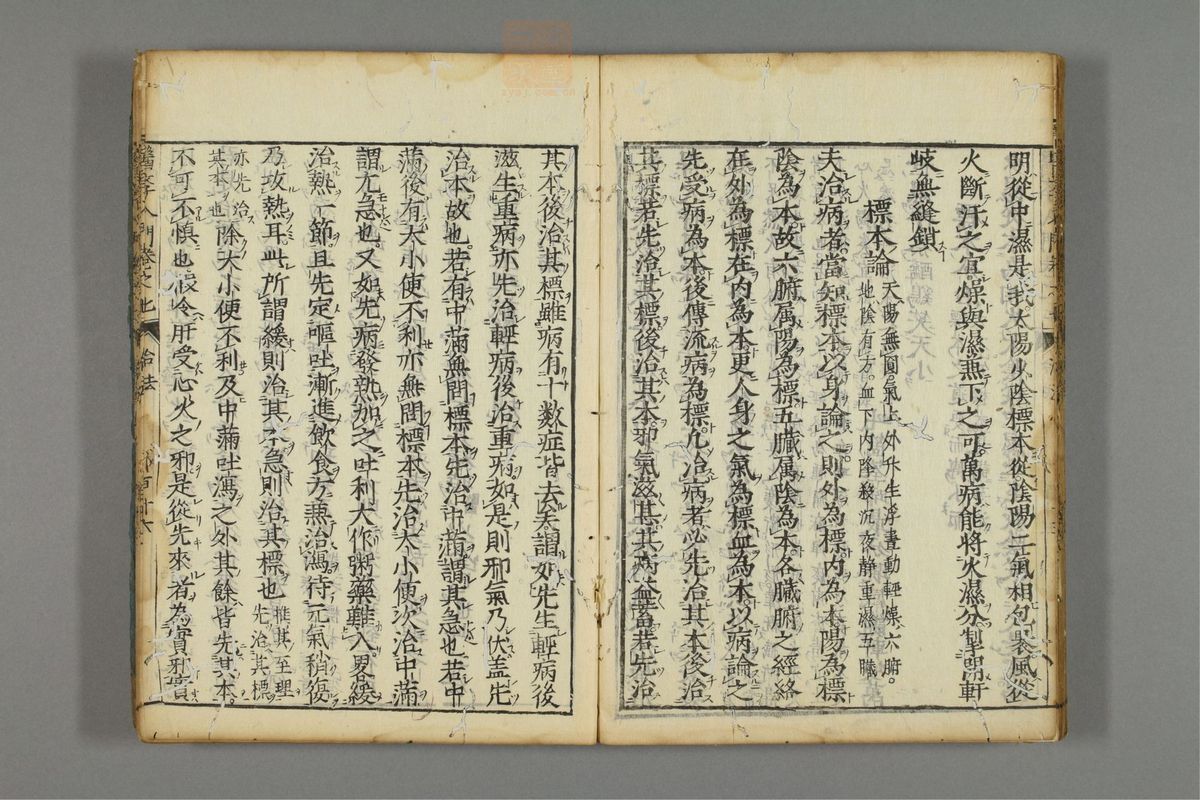 明從中濕是我太陽少陰標本從陰陽二氣相包裹風從
火斷汗之宜燥與濕燕下之可萬病能將火濕分掣開軒
岐無縫鎖
標本論
天陽無圓氣上外升生浮晝動輕燥六腑
地陰有方血下内降殺沉夜静重濕五臟
夫治病者當知標本以身論之則外為標内為本陽為標
陰為本故六腑属陽為標五臟属陰為本各臟腑之經絡
在外為標在内為本更人身之氣為標血為本以病論之
先受病為本後傳流病為標凢治病者必先治其本後治
其標若先治其標後治其本邪氣滋甚其病益蓄若先治
其本後治其標雖病有十数症皆去矣謂如先生輕病後
滋生重病亦先治輕病後治重病如是則邪氣乃伏盖先
治本故也若有中滿無問標本先治中滿謂其急也若中
滿後有大小便不利亦無問標本先治大小便次治中滿
謂尤急也又如先病發熱加之吐利大作粥藥難入畧緩
治熱一節且先定嘔吐漸進飲食方燕治瀉待元氣稍復
乃攻熱耳此所謂緩則治其本急則治其標也
推其至理
先治其標
亦先治
其本也
除大小便不利及中滿吐瀉之外其餘皆先其本
不可不慎也假令肝受心火之邪是從先來者為實邪實
醫學入門卷之七
治法